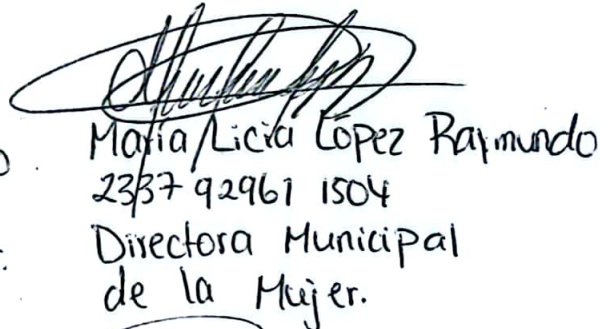 María Licia López Raymundo
2337 92961 1504
Directora Municipal
de la Mujer.